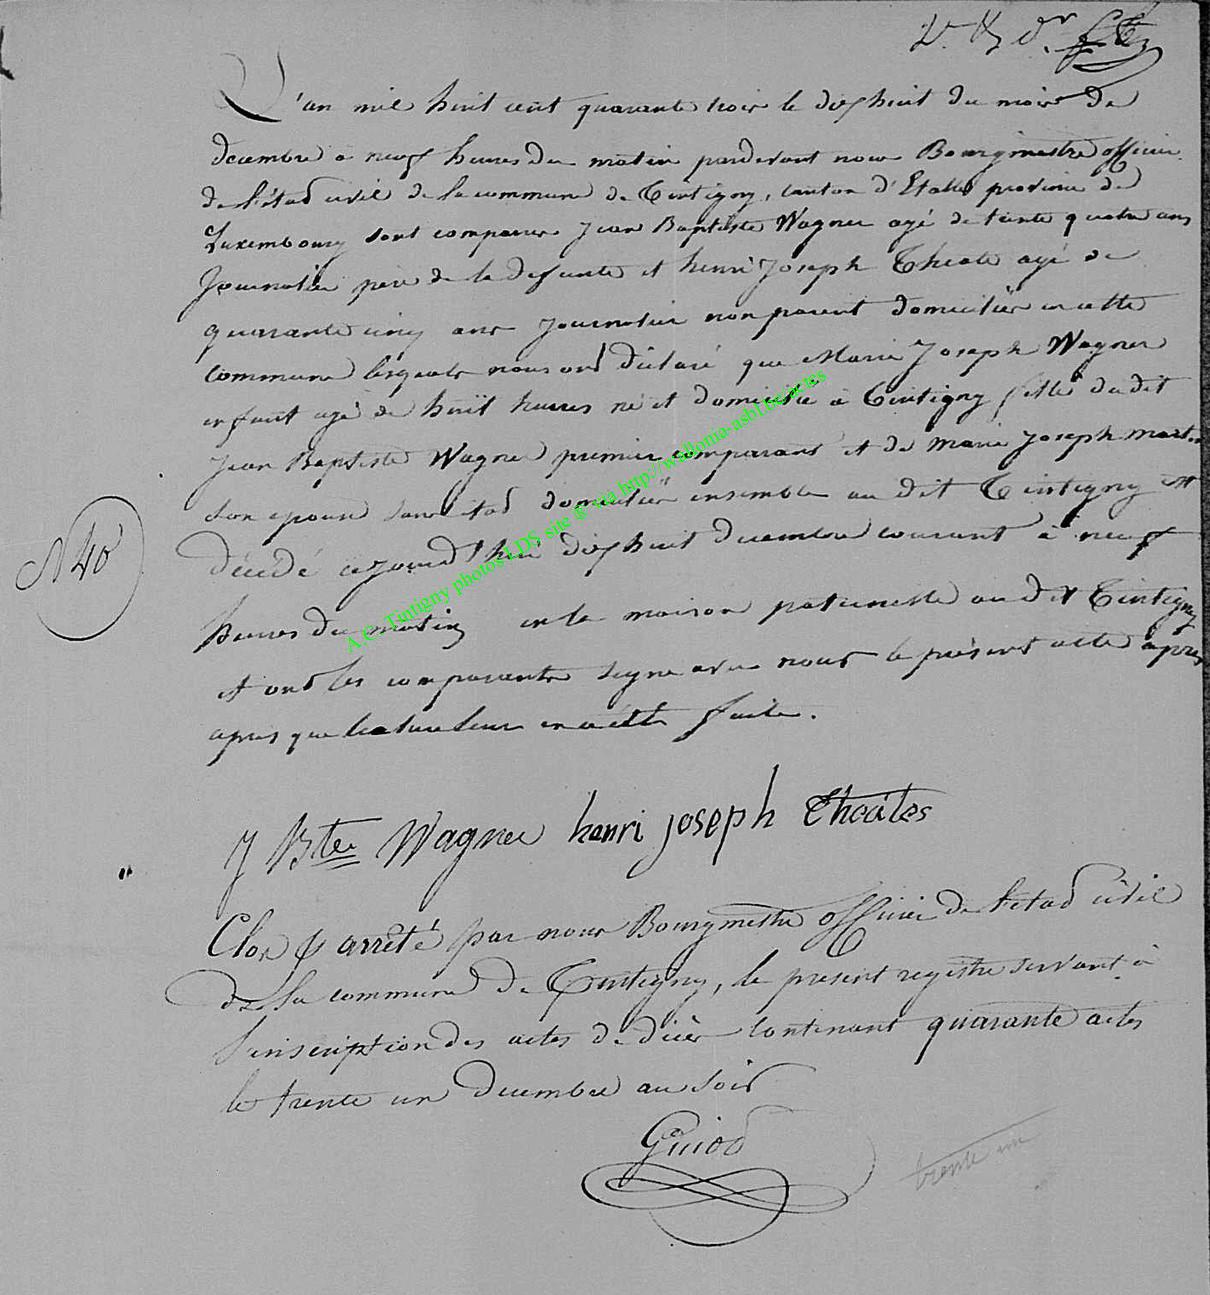 L'an mil huit cent quarante trois le dix huit du mois de
decembre à neuf heures du matin pardevant nous Bourgmestre officier
de l'état civil de la commune de Tintigny, canton d'Etalle province de
Luxembourg sont comparus Jean Baptiste Wagner agé de trente quatre ans
Journalier père de la defunte et henri Joseph Theate agé de
quarante cinq ans Journalier non parent domiciliés en cette
commune lesquels nous ont déclaré que Marie Joseph Wagner
enfant agé de huit heures né et domicilié à Tintigny fille du dit
Jean Baptiste Wagner premier comparant et de marie Joseph martin
son epouse sans état domiciliés ensemble au dit Tintigny est
décédé cejourd'hui dix huit decembre courant à neuf
heures du matin en la maison paternelle au dit Tintigny
et ont les comparants signé avec nous le présent acte après
après que lecture leur en a été faite.
N 40
J Bte Wagner henri joseph Theâtes
Clos & arrêté par nous Bourgmestre officier de l'etat civil
de la commune de Tintigny, le present registre servant à
l'inscription des actes de décès contenant quarante actes
le trente un decembre au soir
Guiot
trente un
A.C. Tintigny photos LDS site & via http://wallonia-asbl.be/actes